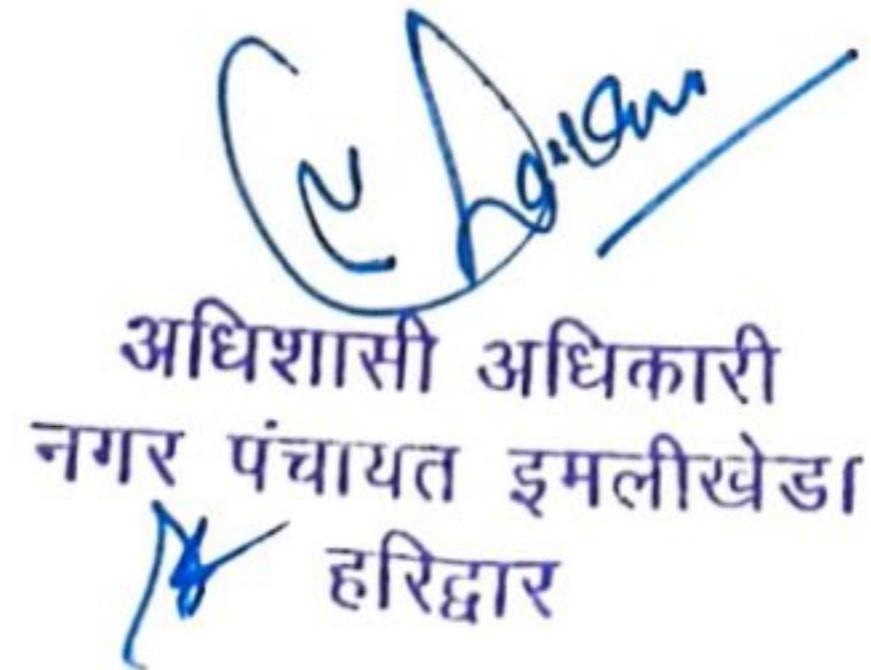 अधिशासी अधिकारी
नगर पंचायत इमलीखेडा
हरिद्वार